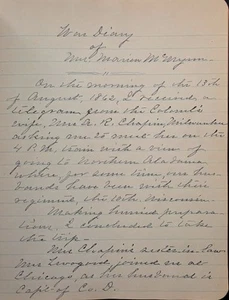 War Diary
of
Mrs. Marion McMynn.
On the morning of the 18th
of August, 1862, I received a
telegram from the Colonel's
wife, Mrs A. R. Chapin, Milwaukee
asking me to meet her on the
4 P.M. train with a view of
going to Northern Alabama
where, for some time, our hus-
bands have been with their
regiment, the 10th Wisconsin.
Making hurried prepara-
tions, I concluded to take
the trip.
Mrs Chapin's sister-in-law
Mrs joined us at
Chicago, as her husband is
Capt. of Co. D.